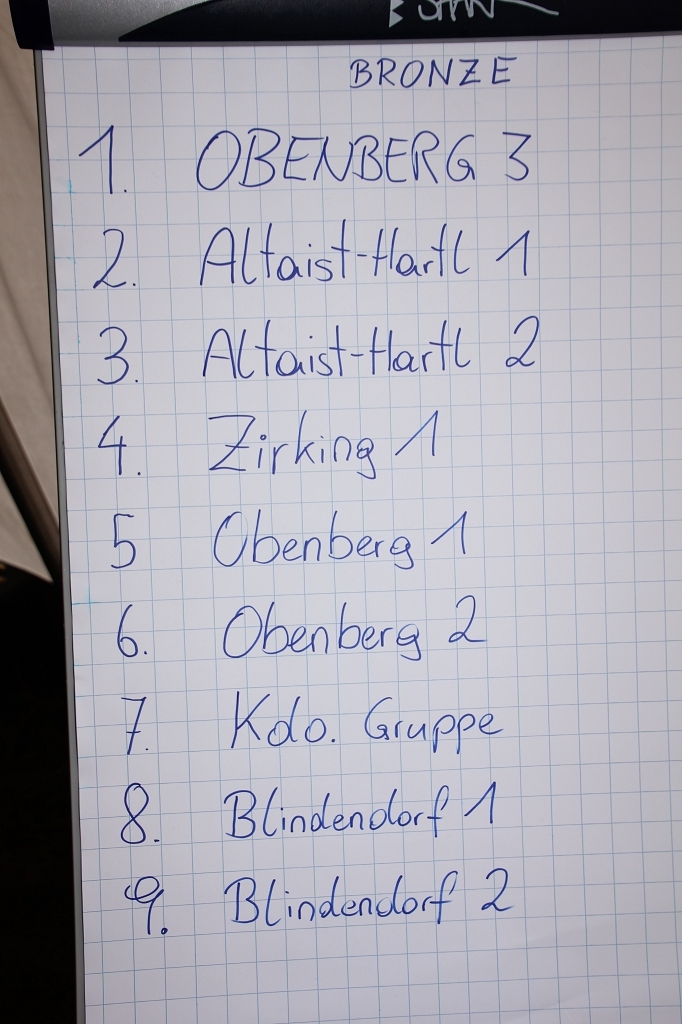 BRONZE
1. OBENBERG 3
2. Altaist-Hartl 1
3. Altaist-Hartl 2
4. Zirking 1
5 Obenberg 1
6. Obenberg 2
7. Kdo. Gruppe
8. Blindendorf 1
9. Blindendorf 2